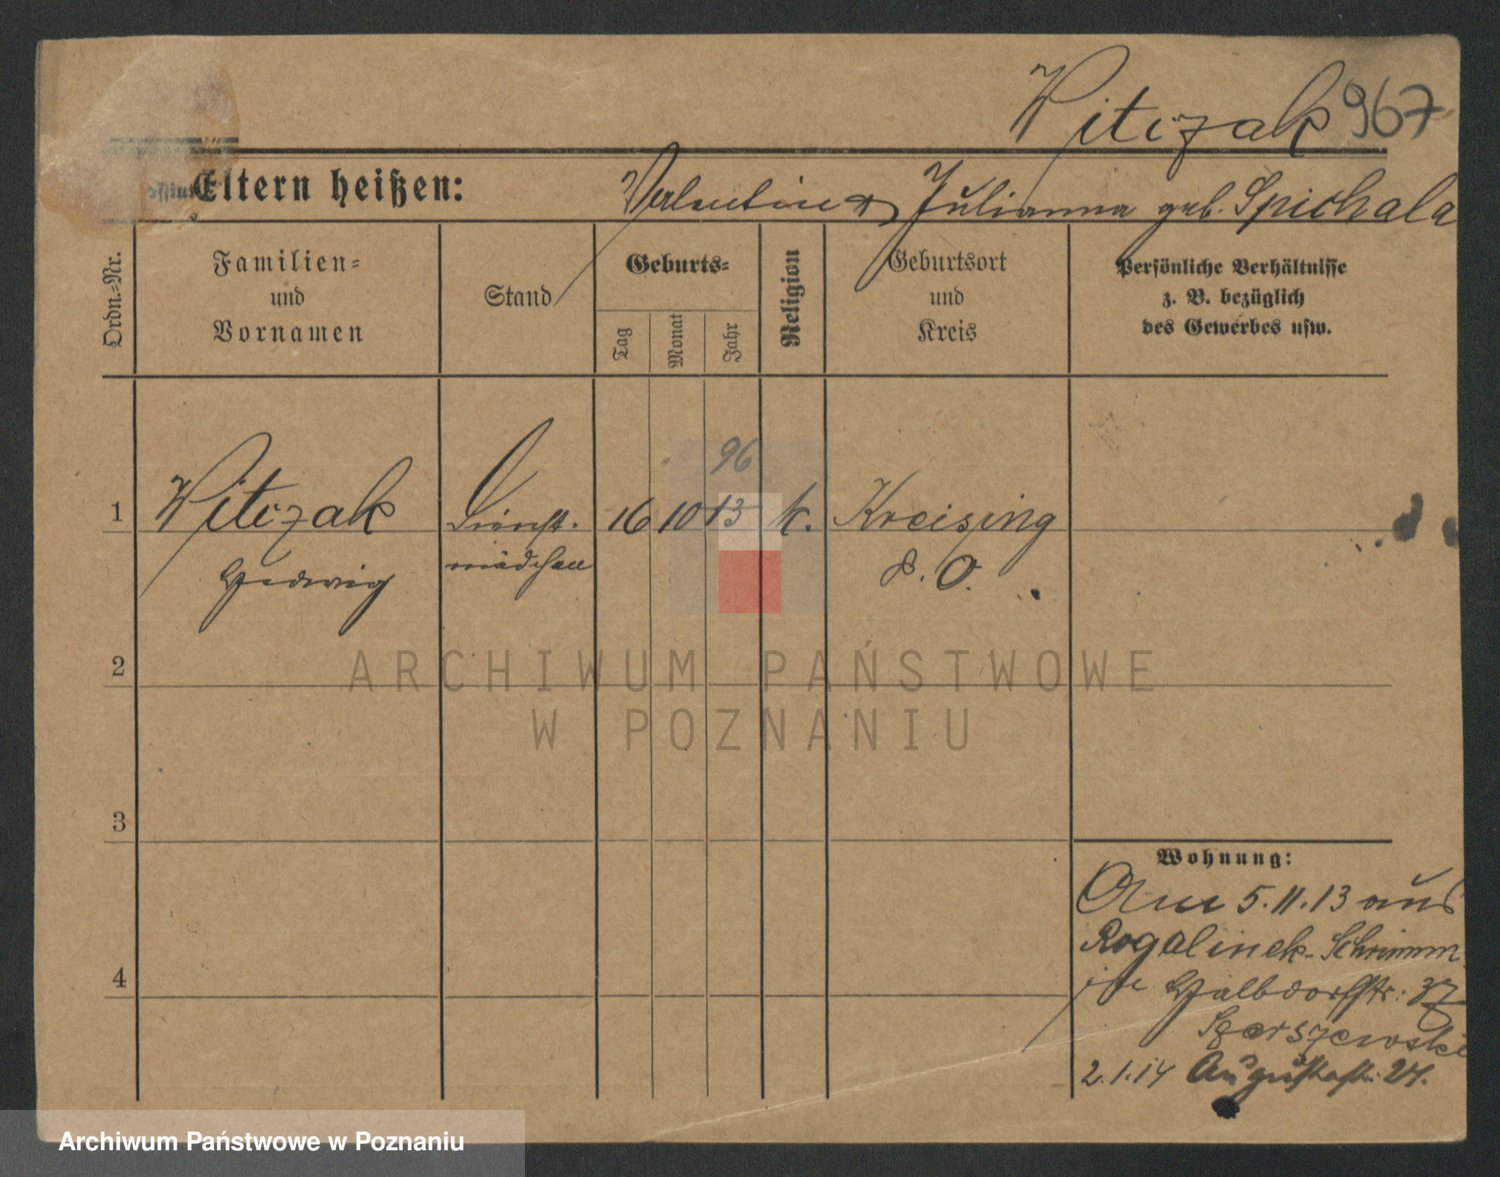 Witczak 967
Eltern heißen: Valentin u. Julianna geb. Spichala
Ordn.-Nr.
Familien-
und
Vornamen
Stand
Geburts-
Tag
Monat
Jahr
Religion
Geburtsort
und
Kreis
Persönliche Verhältnisse
z. B. bezüglich
des Gewerbes usw.
96
1 Witczak Dienst- 16 10 13 k. Kreising
Hedwig mädchen P. O.
2
3
4
ARCHIWUM PAŃSTWOWE
W POZNANIU
Wohnung:
Am 5.11.13 aus
Rogalinek-Schrimm
in Halbdorfstr: 37
2.1.14 Augustastr. 24.
Archiwum Państwowe w Poznaniu